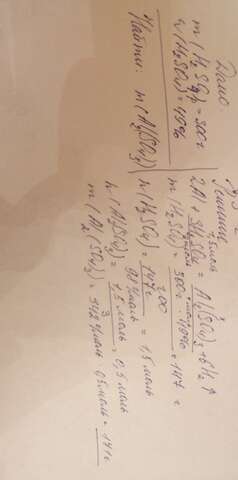 Дано:
m(H₂SO₄)р = 300г
ω(H₂SO₄) = 49%
Найти: m(Al₂(SO₄)₃)
Решение
1,5моль
2Al + 3H₂SO₄ = Al₂(SO₄)₃ + 3H₂↑
3моль 1моль
m(H₂SO₄) = 300г · 49% = 147 г
100
n(H₂SO₄) = 147г = 1,5 моль
98г/моль
n(Al₂(SO₄)₃) = 1,5моль = 0,5 моль
3
m(Al₂(SO₄)₃) = 342г/моль · 0,5моль = 171г